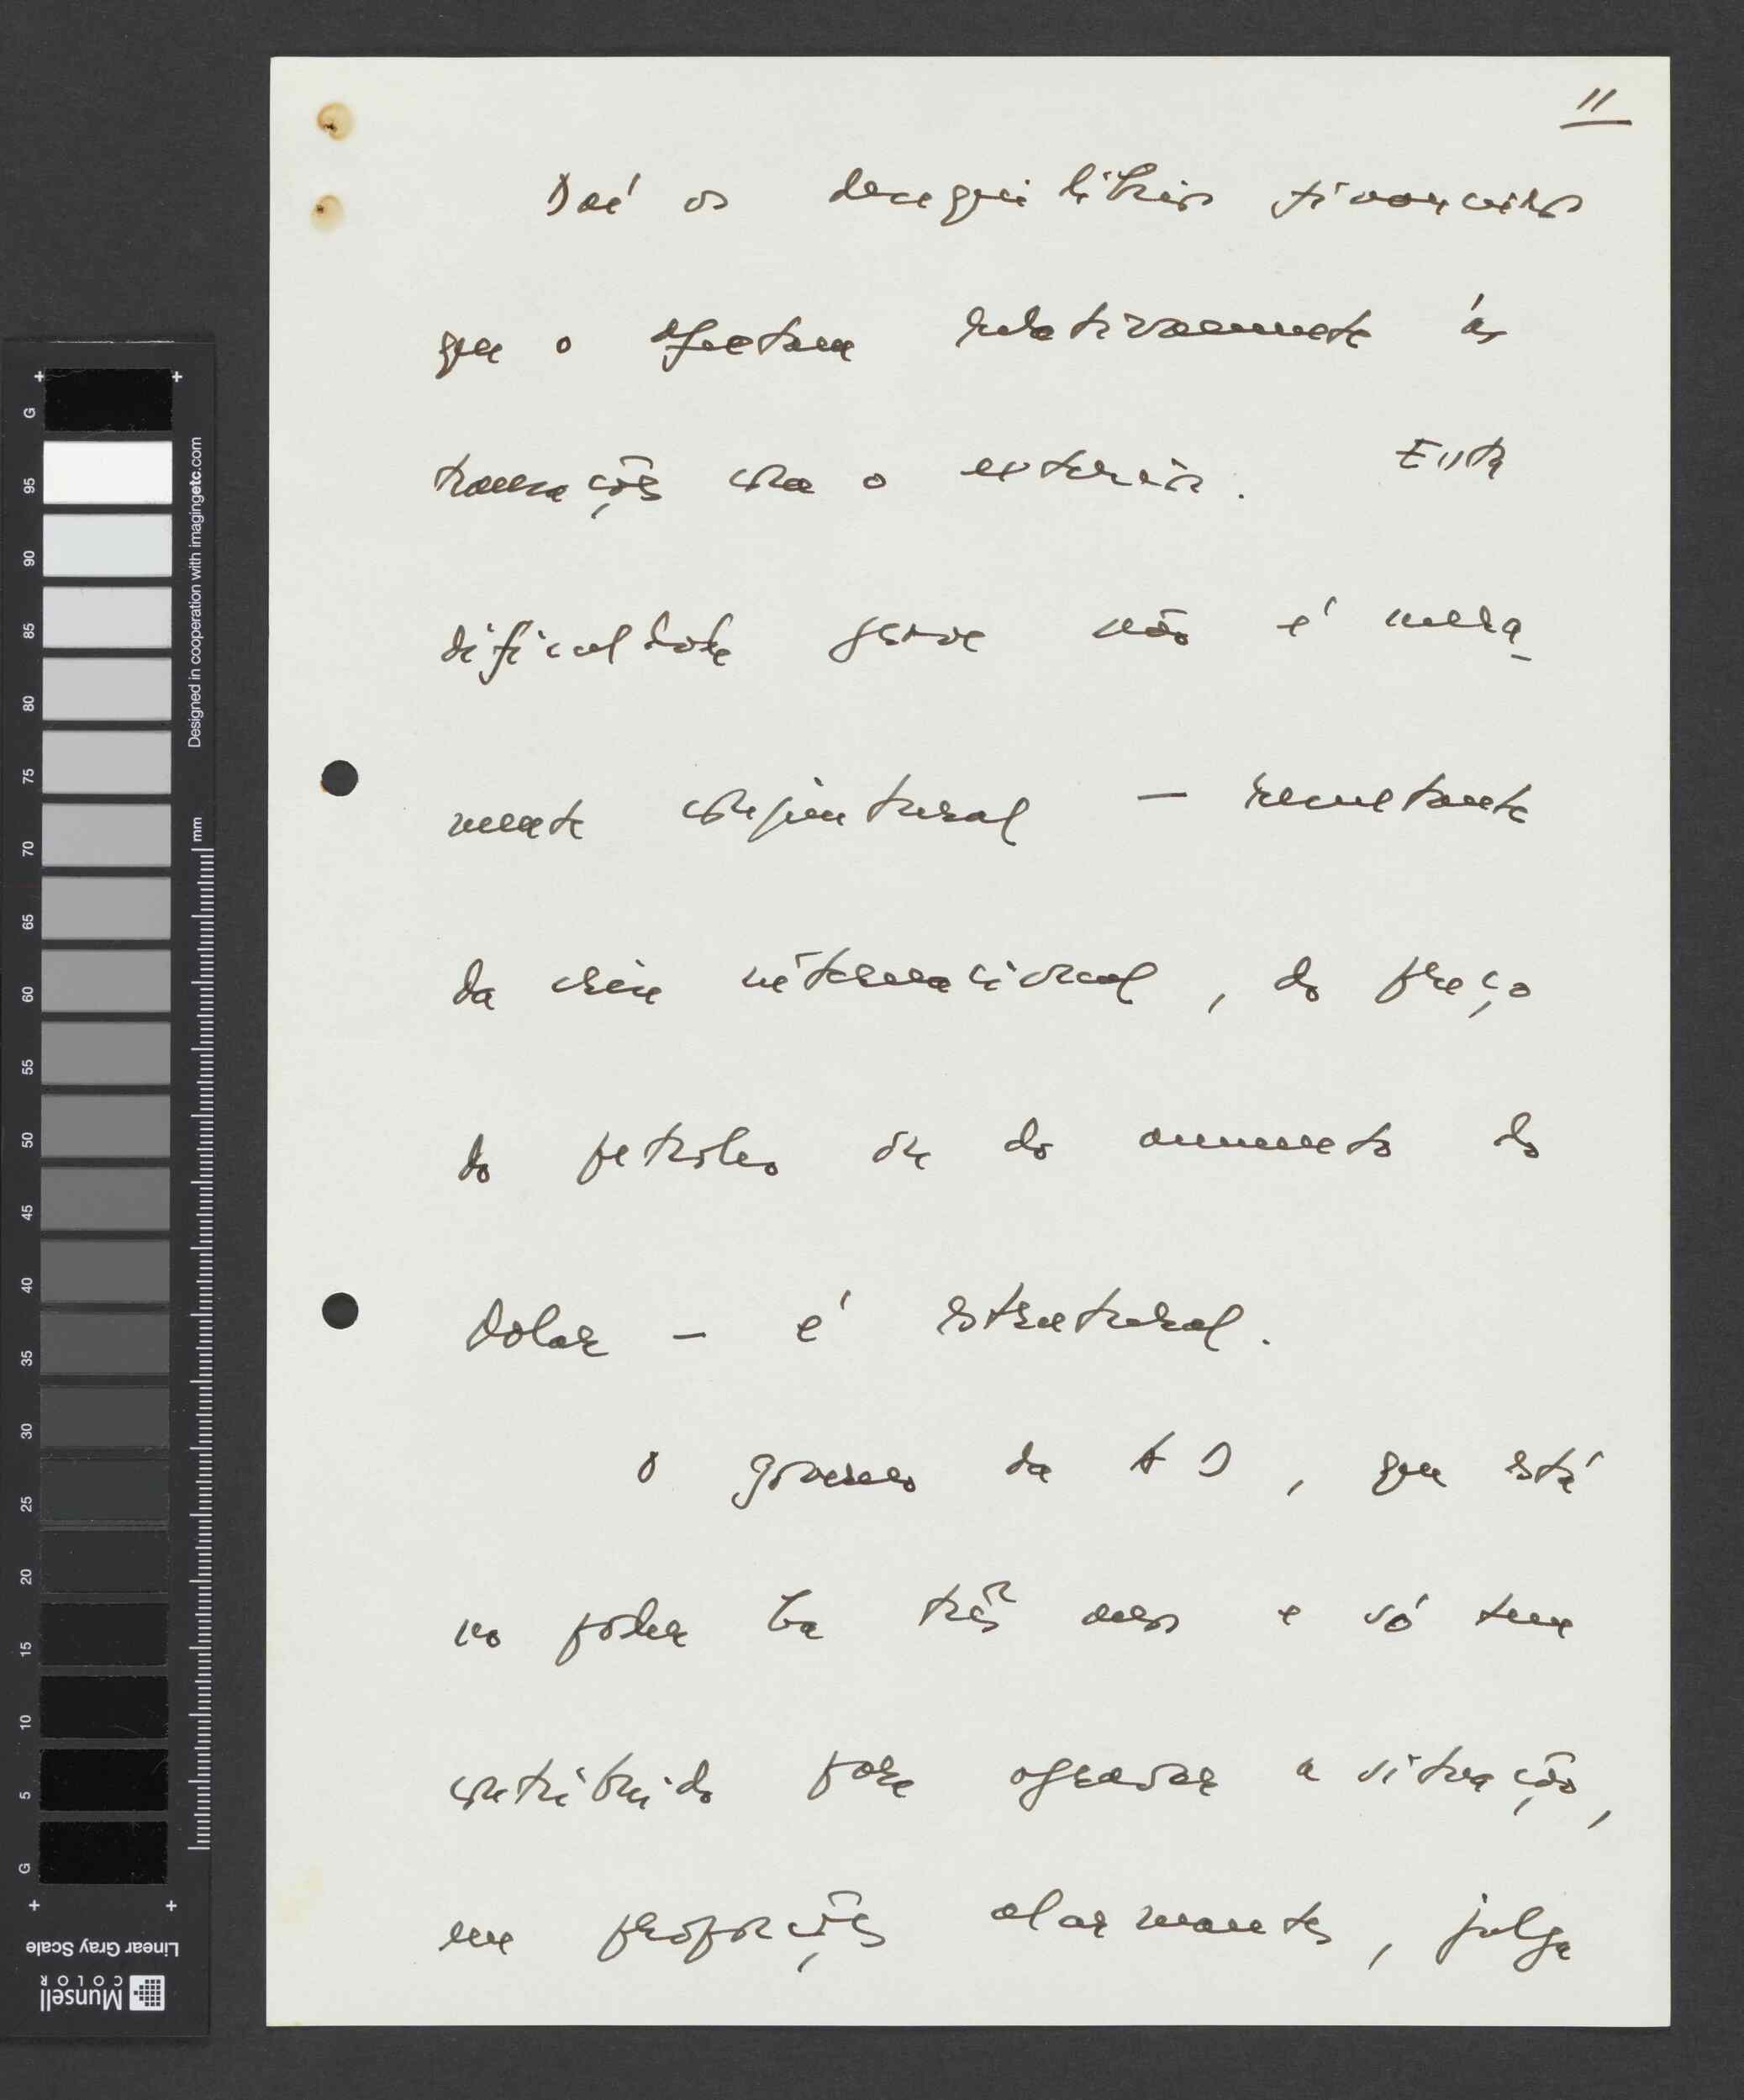 11
Daí os desequilíbrios financeiros
que o afectam relativamente às
transações com o exterior. Esta
dificuldade grave não é mera-
mente conjuntural — resultante
da crise internacional, do preço
do petróleo ou do aumento do
Dolar — é estrutural.
O governo da AD, que está
no poder há três anos e só tem
contribuido para agravar a situação,
em proporções alarmantes, julga
G
95
90
85
80
75
70
65
60
55
50
45
40
35
30
25
20
15
10
5
G
mm
Designed in cooperation with imagingetc.com
Linear Gray Scale
Munsell
COLOR